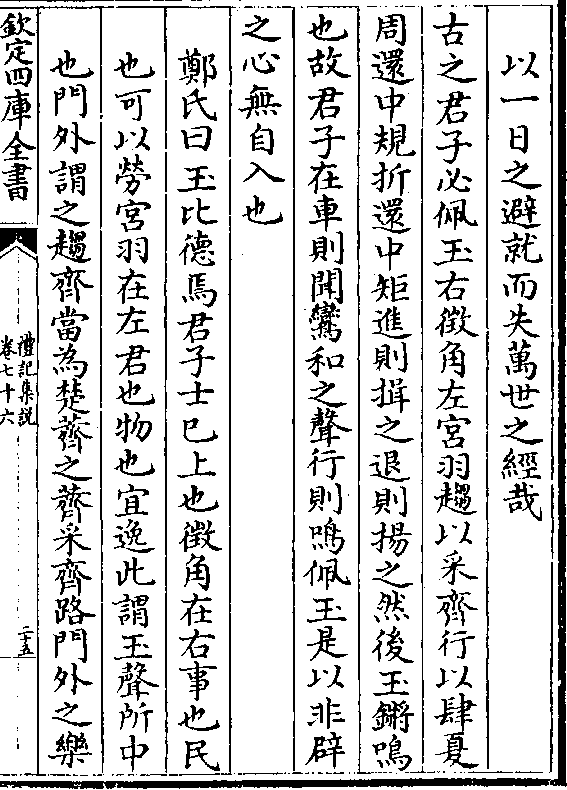 以一日之避就而失萬世之經哉
古之君子必佩玉右徵角左宮羽趨以采齊行以肆夏
周還中規折還中矩進則揖之退則揚之然後玉鏘鳴
也故君子在車則聞鸞和之聲行則鳴佩玉是以非辟
之心無自入也
鄭氏曰玉比德焉君子士已上也徵角在右事也民
也可以勞宮羽在左君也物也宜逸此謂玉聲所中
也門外謂之趨齊當為楚薺之薺采齊路門外之樂
欽定四庫全書
禮記集説
卷七十六
二十五